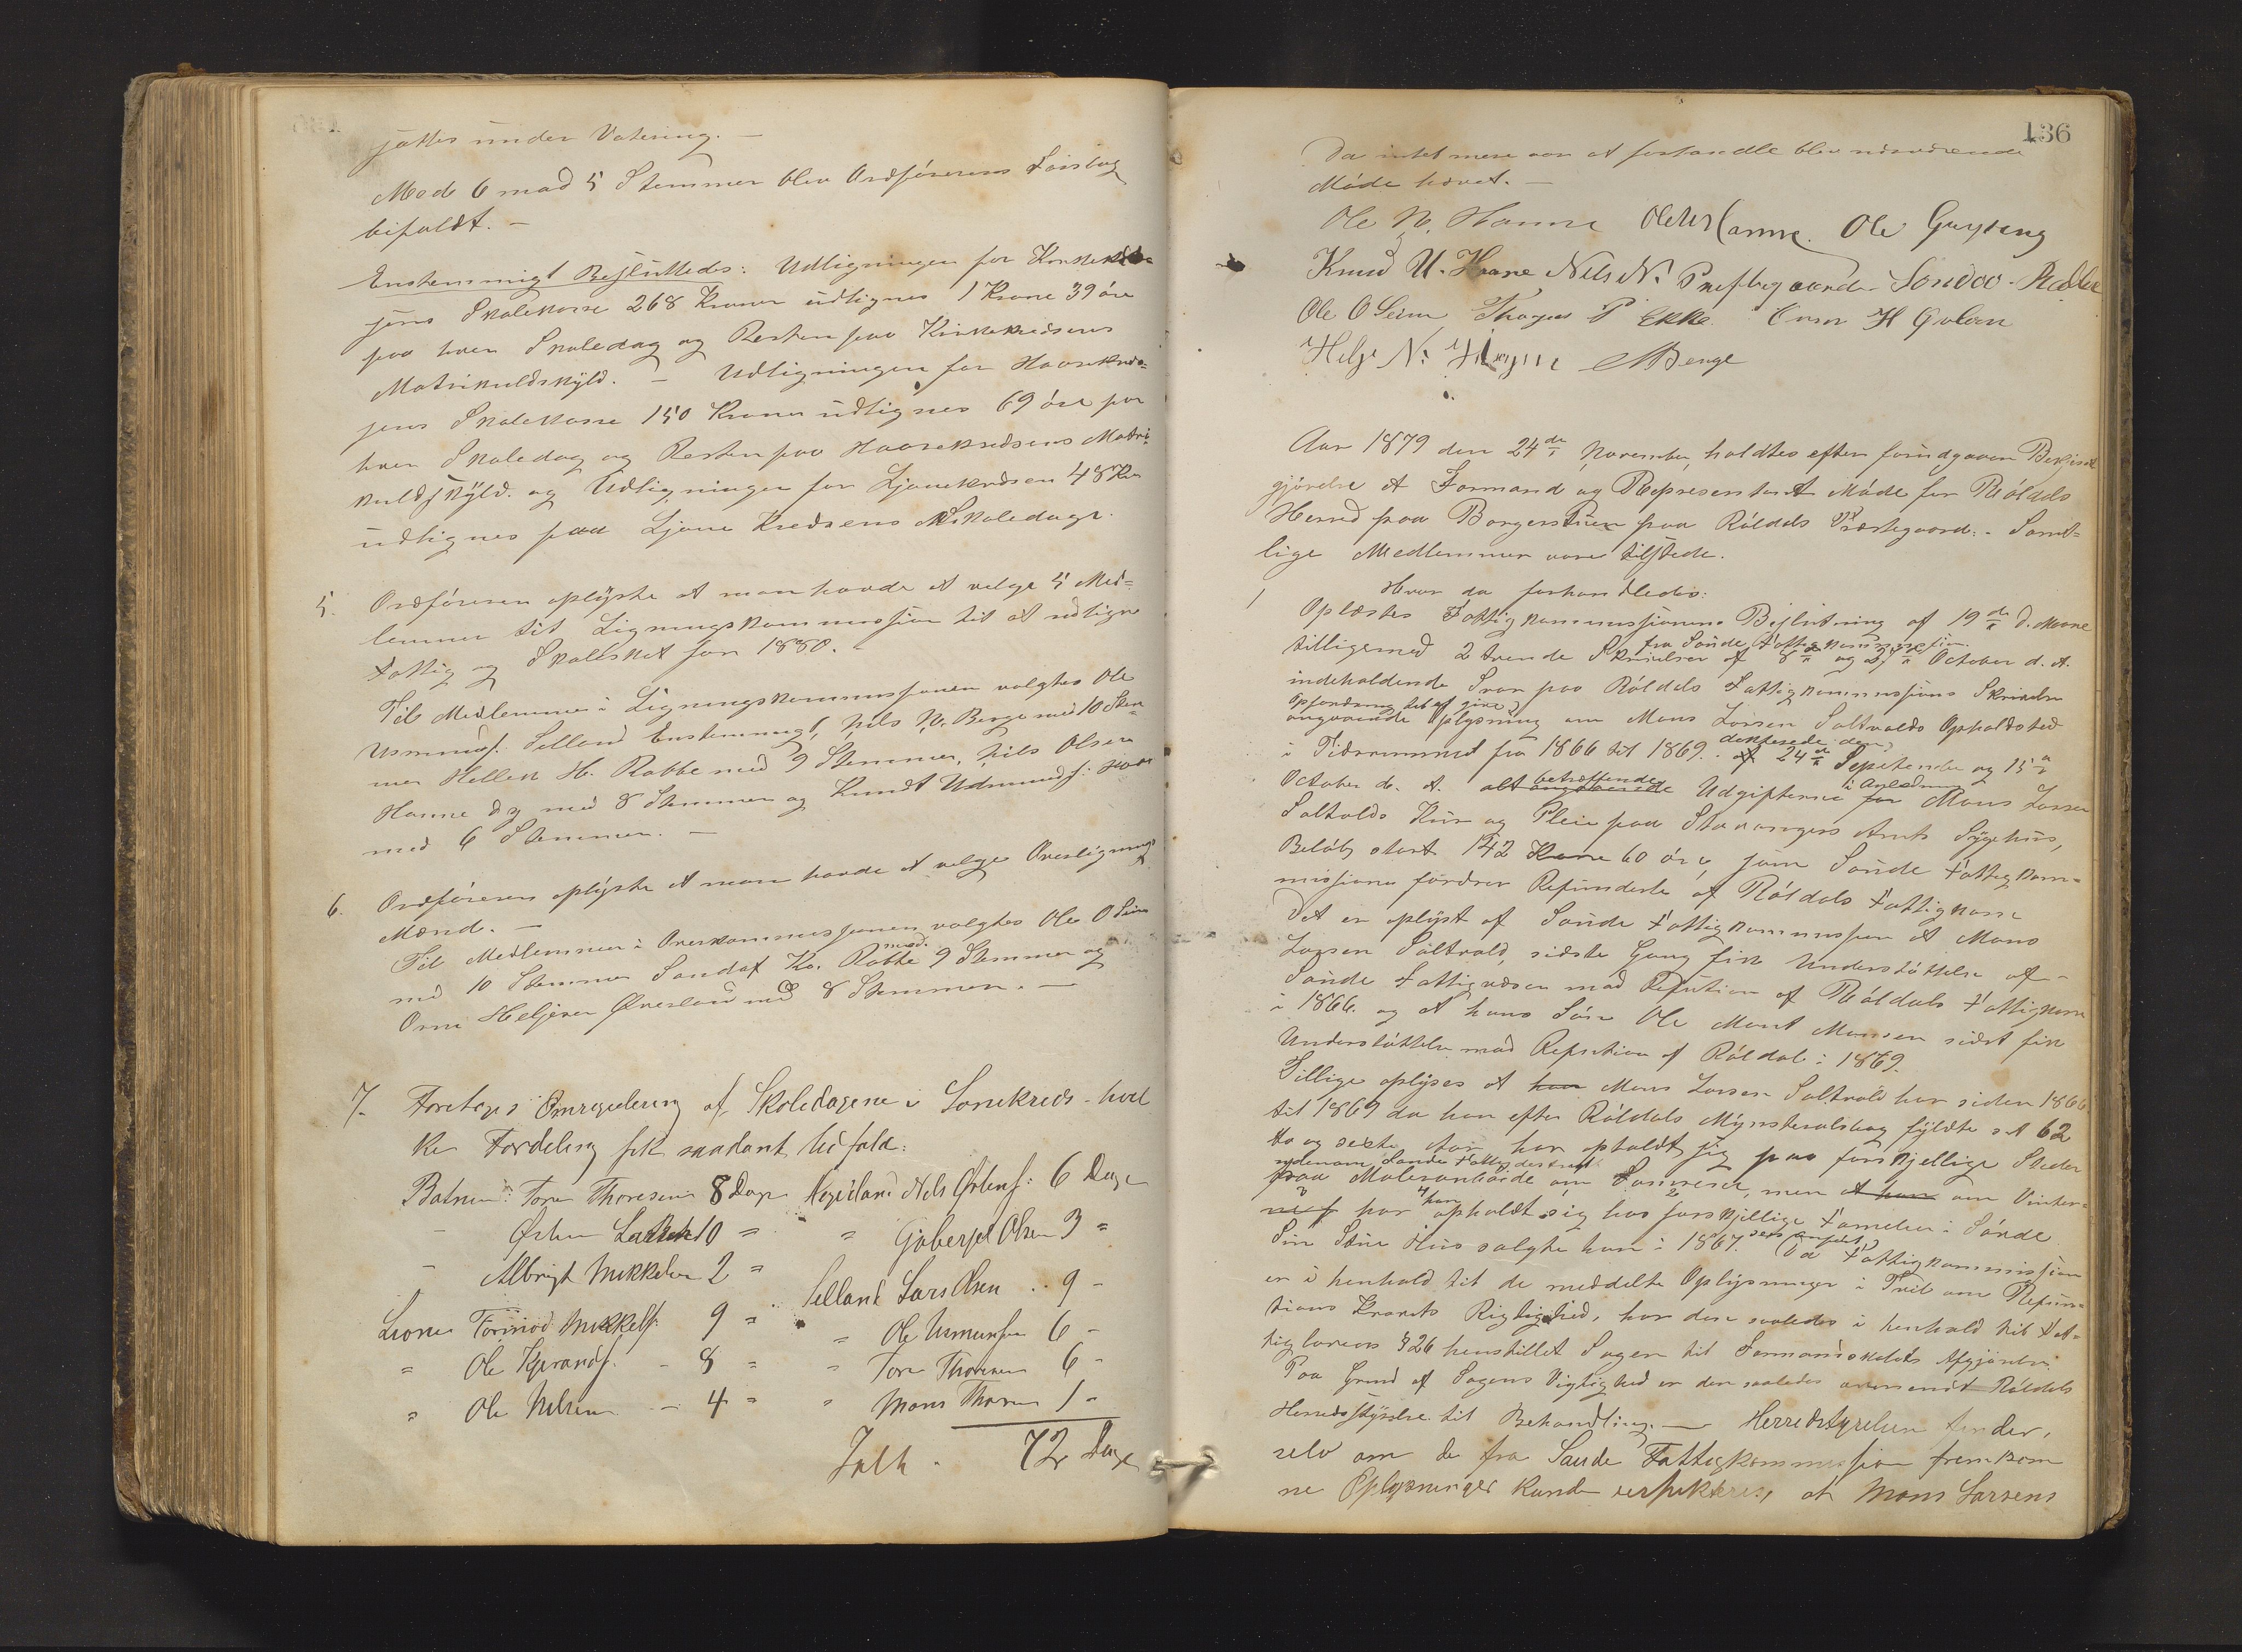 jættes under Votering. –
Mod 6 mod 5 Stemmer blev Ordførerens Forslag
bifaldt. –
Enstemmigt Besluttedes: Udligningen for
jens Skolekasse 268 Kroner udlignes 1 Krone 39 øre
paa hver Skoledag og Resten paa Kirkekredsens
Matrikulskyld. – Udligningen for Haarekred=
jens Skolekasse 150 Kroner udlignes 69 øre paa
hver Skoledag og Resten paa Haarekredsens Matri-
kulsskyld. og Udligningen for Ljonekredsen 48 Kr
udlignes paa Ljone Kredsens Skoledage.
5. Ordføreren oplyste at man havde at velge 5 Med=
lemmer til Ligningskommission til at udligne
Fattig og Skoleskat for 1880. –
Til Medlemmer i Ligningskommissionen valgtes Ole
Usmunds. Selland Enstemmigt, Nils N. Berge med 10 Stem
mer H. Rabbe med 9 Stemmer, Nils Olsen
Hamre med 8 Stemmer og Knudt Udmunds: Haare
med 6 Stemmer. –
6. Ordføreren oplyste at man havde at velge Overlignings
Mænd. –
Til Medlemmer i Overkommissionen valgtes Ole O Seim
med 10 Stemmer Kn. Rabbe med 9 Stemmer og
Orm Heljesen Øverland med 8 Stemmer. –
7. Foretoges Omregulering af Skoledagene i Lonekreds – hvil
ke Fordeling fik saadant Udfald:
Botnen: Tore Thoresen 8 Dage Nils 6 Dage
– Østen Larsen 10 = " Olsen 3 =
– Albrigt Mikkelsen 2 = Selland Lars Olsen .. 9 –
Lione Tormod Mikkels: 9 = " Ole Usmundsen 6 –
= Ole – 8 = " Tore Thoresen 6 –
" Ole Nilsen – 4 = " Mons Thoresen 1 –
Ialt . 72 Dage
136
Da intet mere var at forhandle blev nærværende
Møde hævet. –
Ole N. Hamre Ole Hamre. Ole
Knud U. Haare Nils N. Prestegaarde Rabbe
Ole O Seim P Ekke Orm H
Helje N. Berge
Aar 1879 den 24de November, holdtes efter forudgaaen Bekjent
gjørelse et Formand og Representant Møde for Røldals
Herred paa Borgerstuen paa Røldals Præstegaard. – Samt=
lige Medlemmer vare tilstede.
Hvor da forhandledes:
1 Oplæstes Fattigkommissionens Beslutning af 19de d. Maane
fra Sande Fattigkommission
tilligemed 2 tvende Skrivelser af 8de og October d. A.
indeholdende Svar paa Røldals Fattigkommissions Skrivelse
Opfordring til at give
angaaende Oplysning om Mons Larsen Saltvolds Opholdsted
i Tidsrummet fra 1866 til 1869. dateret den 24de September og 15de
October d. A. alt betræffende Udgifterne i Anledning for Mons Larsen
Saltvolds Kur og Pleie paa Stavangers Amts Sygehus,
Beløb stort 142 Krone 60 øre, som Sande Fattigkom=
missions fordrer Refunderte af Røldals Fattigkasse
Det er oplyst af Sande Fattigkommission at Mons
Larsen Saltvold, sidste Gang fik Understøttelse af
Sande Fattigvæsen mod Refusion af Røldals Fattigkasse
i 1866. og at hans Søn Ole Monsen sidst fik
Understøttelse mod Refusion af Røldal i 1869.
Tillige oplyses at han Mons Larsen Saltvold har siden 1866
til 1869 da han efter Røldals fyldte sit 62
to og sexti Aar har opholdt sig paa forskjellige Steder
udenom Sande Fattigdistrikt
paa Malerarbeide om Sommeren, men at han om Vinter=
har han opholdt sig hos forskjellige Familier i Sande
Sin Stue Hus solgte han i 1867. Da Fattigkommission
er i henhold til de meddelte Oplysninger i Tvil om Refun=
tions Kravets Rigtighed, har den saaledes i henhold til Fat=
tiglovens § 26 henstillet Sagen til Formandskabets Afgjørelse.
Paa Grund af Sagens Vigtighed er den saaledes oversendt Røldals
Herredsstyrelse til Behandling. – Herredstyrelsen finder,
selv om de fra Sande Fattigkommission fremkom
ne Oplysninger kunde, at Mons Larsens